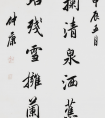 甲辰五月
掬清泉洒蕉
残雪擁蘭
仲康